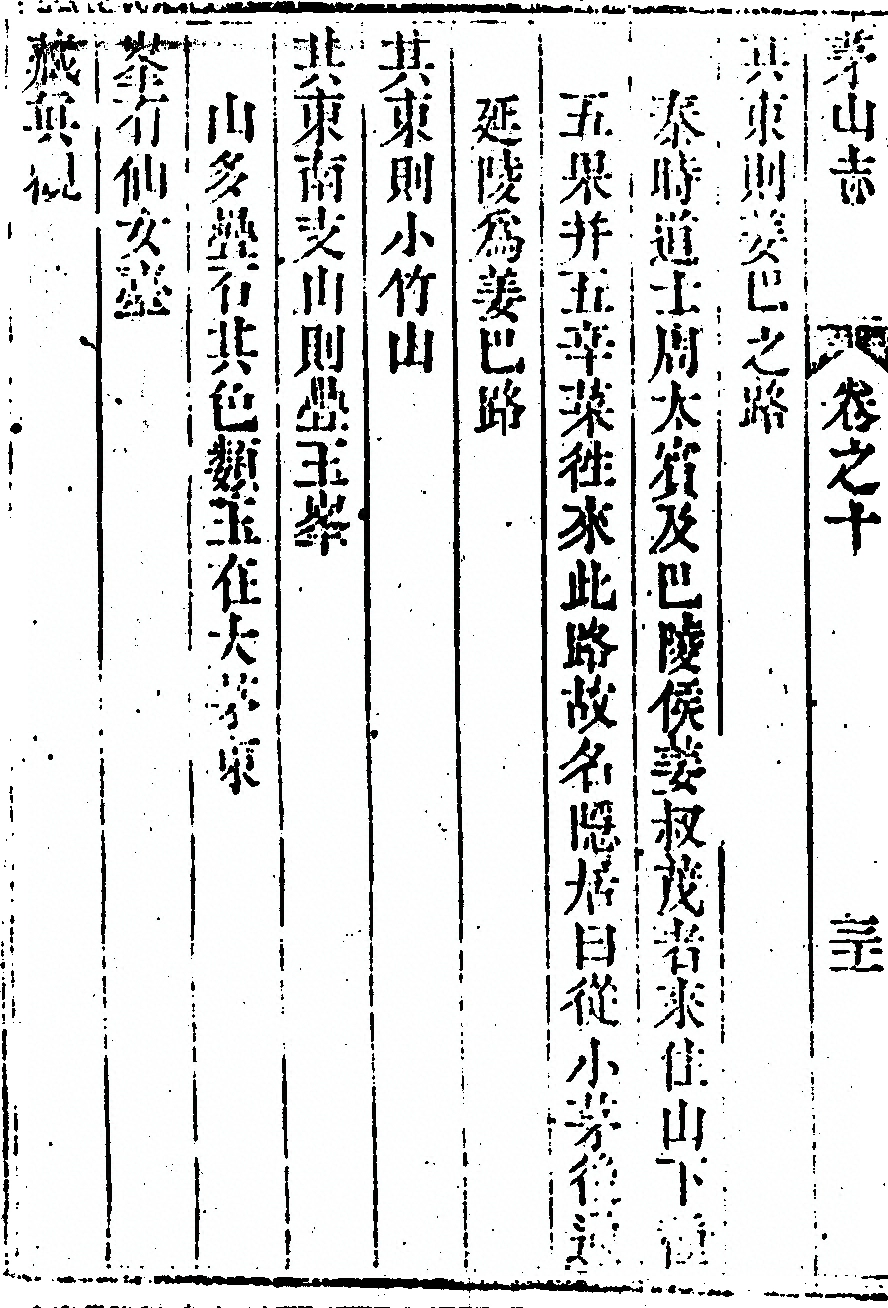 茅山志
卷之十
三十二
其東則姜巴之路
秦時道士周太賓及巴陵侯姜叔茂者來住山下種
五果并五辛菜徃來此路故名隱居曰從小茅後通
延陵爲姜巴路
其東則小竹山
其東南支山則疊玉峯
山多疊石其色類玉在大茅東
峯有仙女臺
藏眞觀